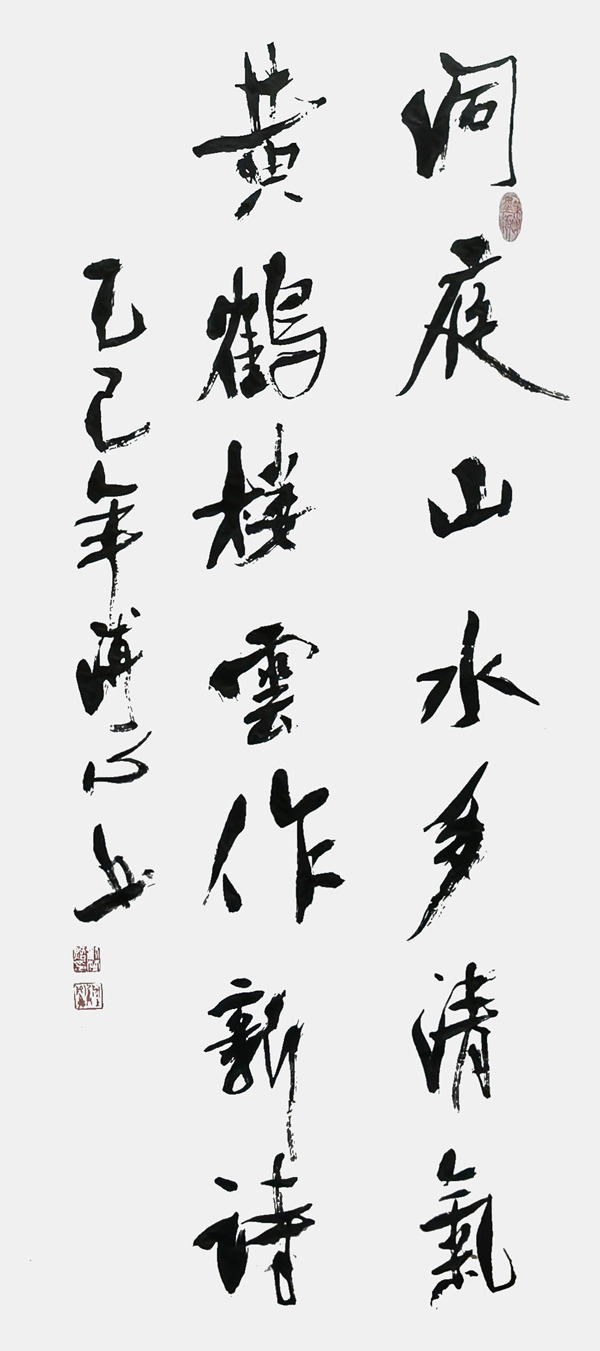 洞庭山水多清氣
黃鶴樓雲作新詩
乙巳年